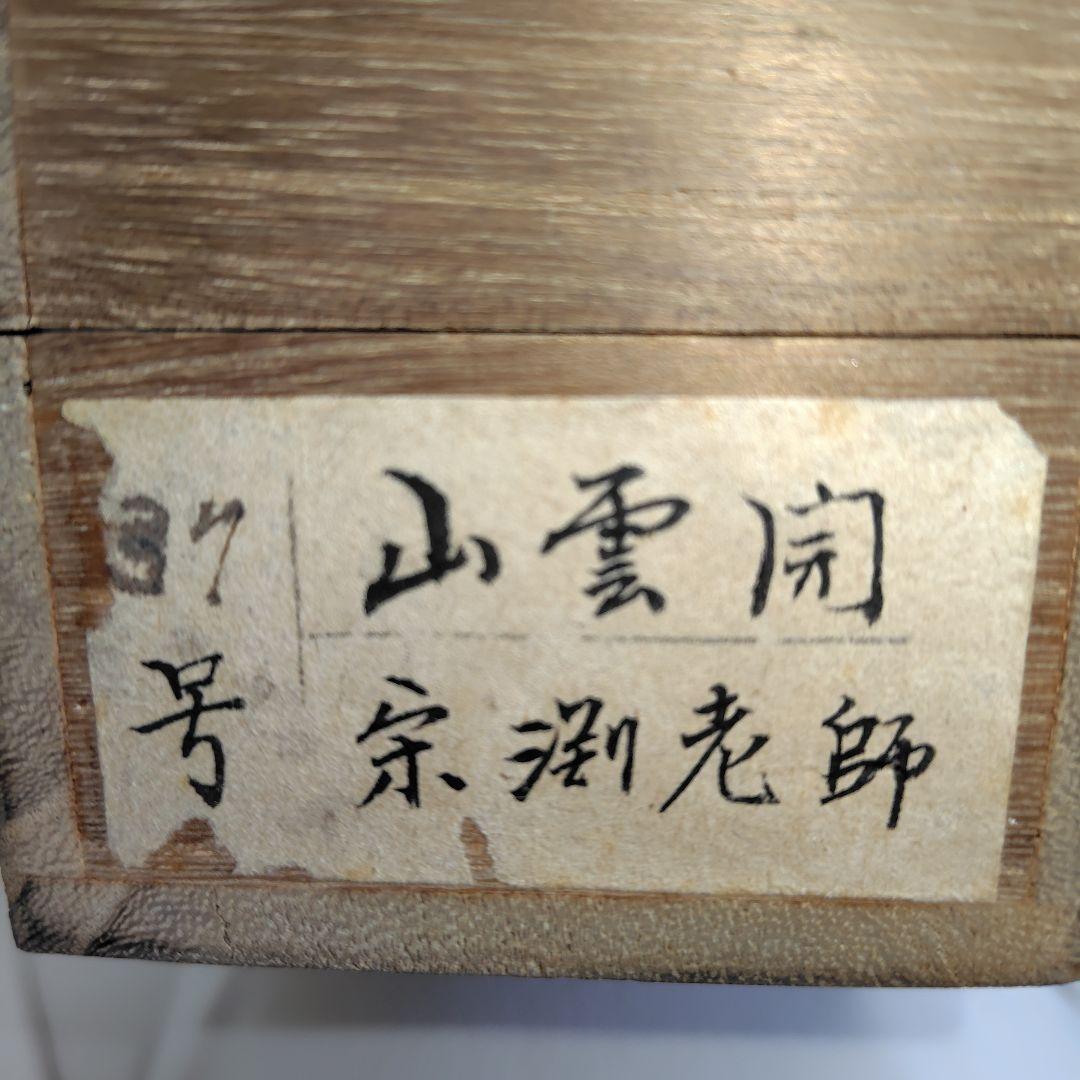 37
号
山雲開
宗渕老師